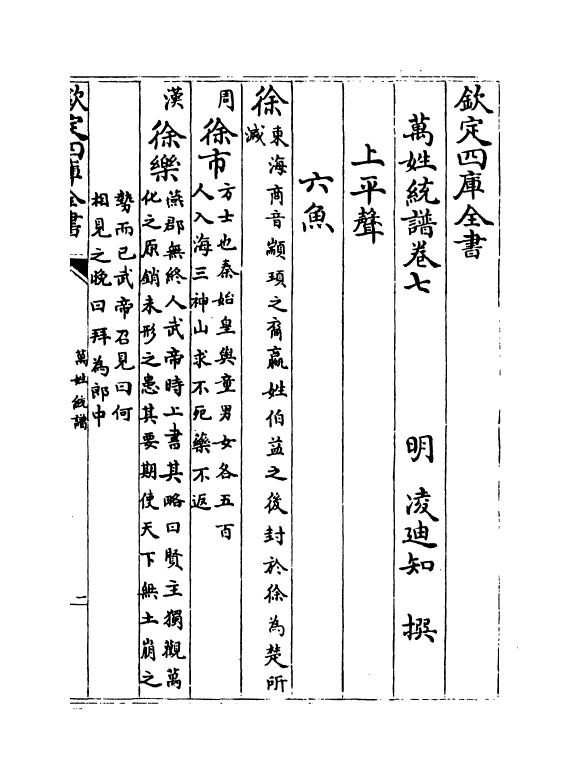 欽定四庫全書
萬姓統譜卷七
明 凌迪知 撰
上平聲
六魚
徐東海商音顓頊之裔嬴姓伯益之後封於徐為楚所
滅
周 徐市方士也秦始皇與童男女各五百
人入海三神山求不死藥不返
漢 徐樂燕郡無終人武帝時上書其略曰賢主獨觀萬
化之原銷未形之患其要期使天下無土崩之
勢而已武帝召見曰何
相見之晚曰拜為郎中
欽定四庫全書
萬姓統譜
二